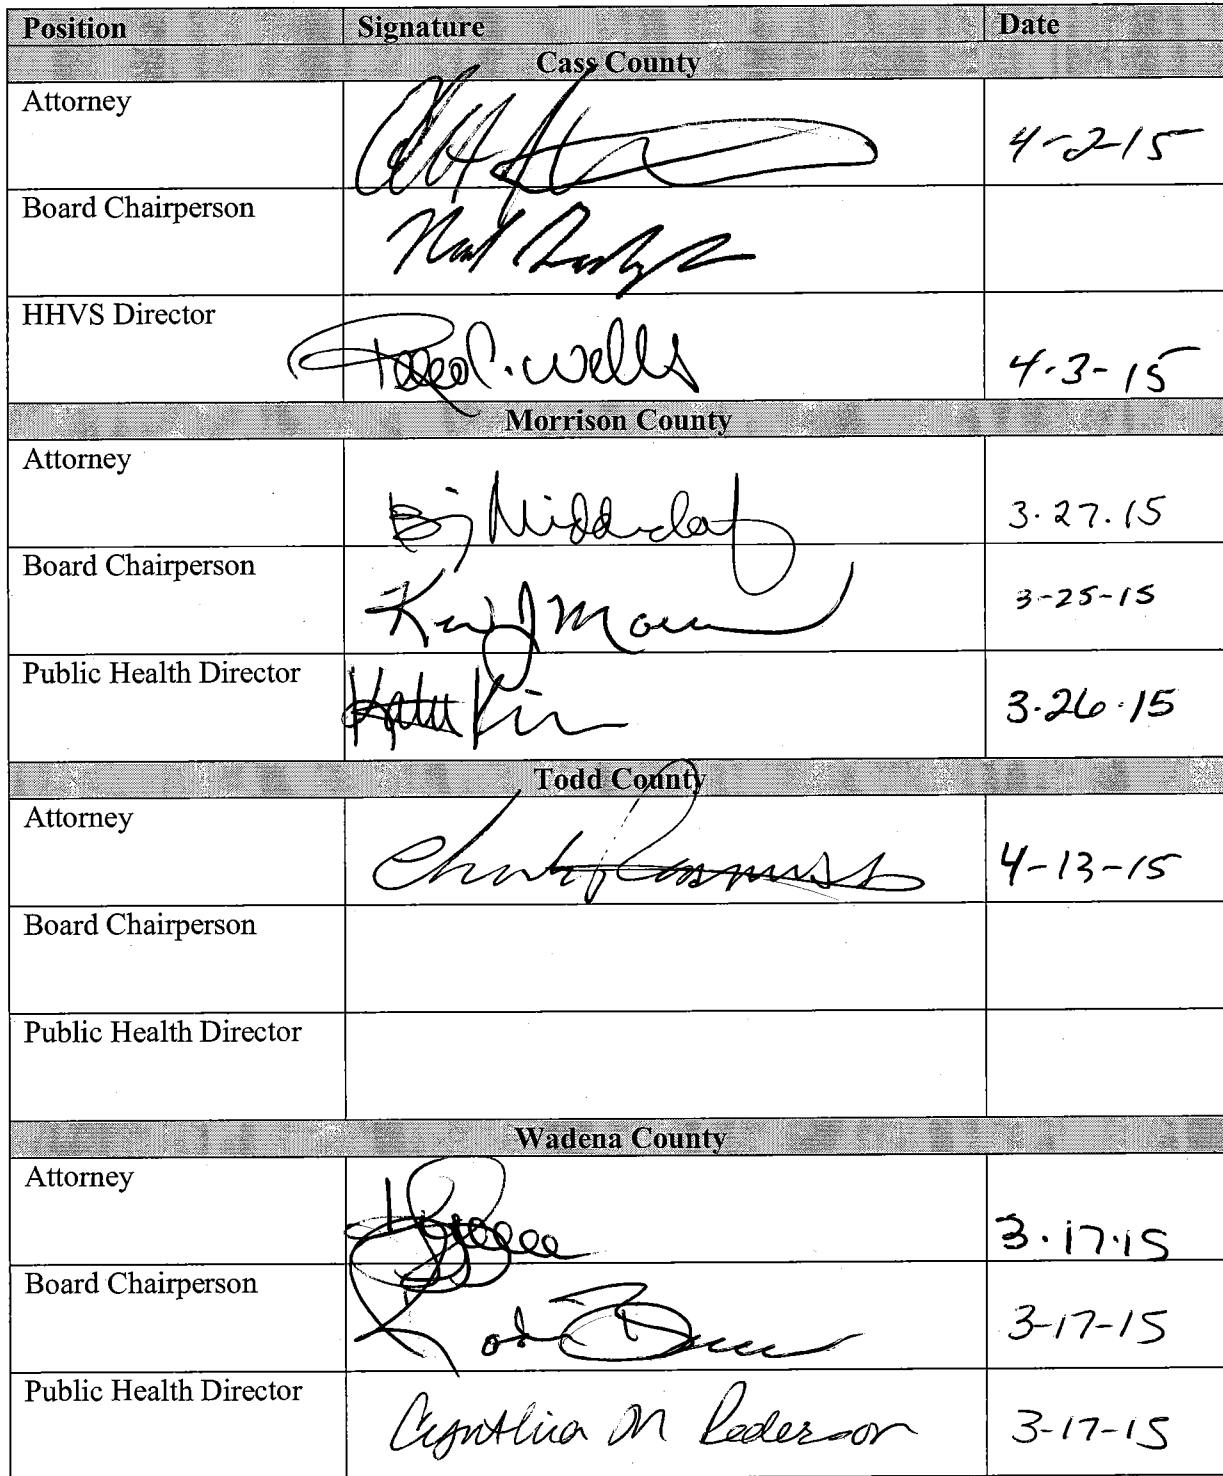 Position Signature Date
Cass County
Attorney 4-2-15
Board Chairperson
HHVS Director C. Wells 4-3-15
Morrison County
Attorney 3.27.15
Board Chairperson 3-25-15
Public Health Director 3.26.15
Todd County
Attorney 4-13-15
Board Chairperson
Public Health Director
Wadena County
Attorney 3.17.15
Board Chairperson 3-17-15
Public Health Director Cynthia M Pederson 3-17-15